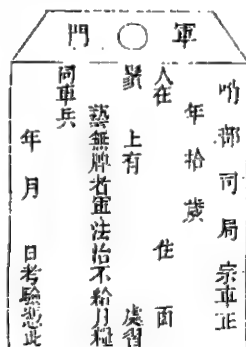 軍 ○ 門
哨部司局宗車正
年拾歲
人在 住 面
鬚 上有 處習
藝無牌者軍法治不給月糧
同車兵
年月 日考驗憑此